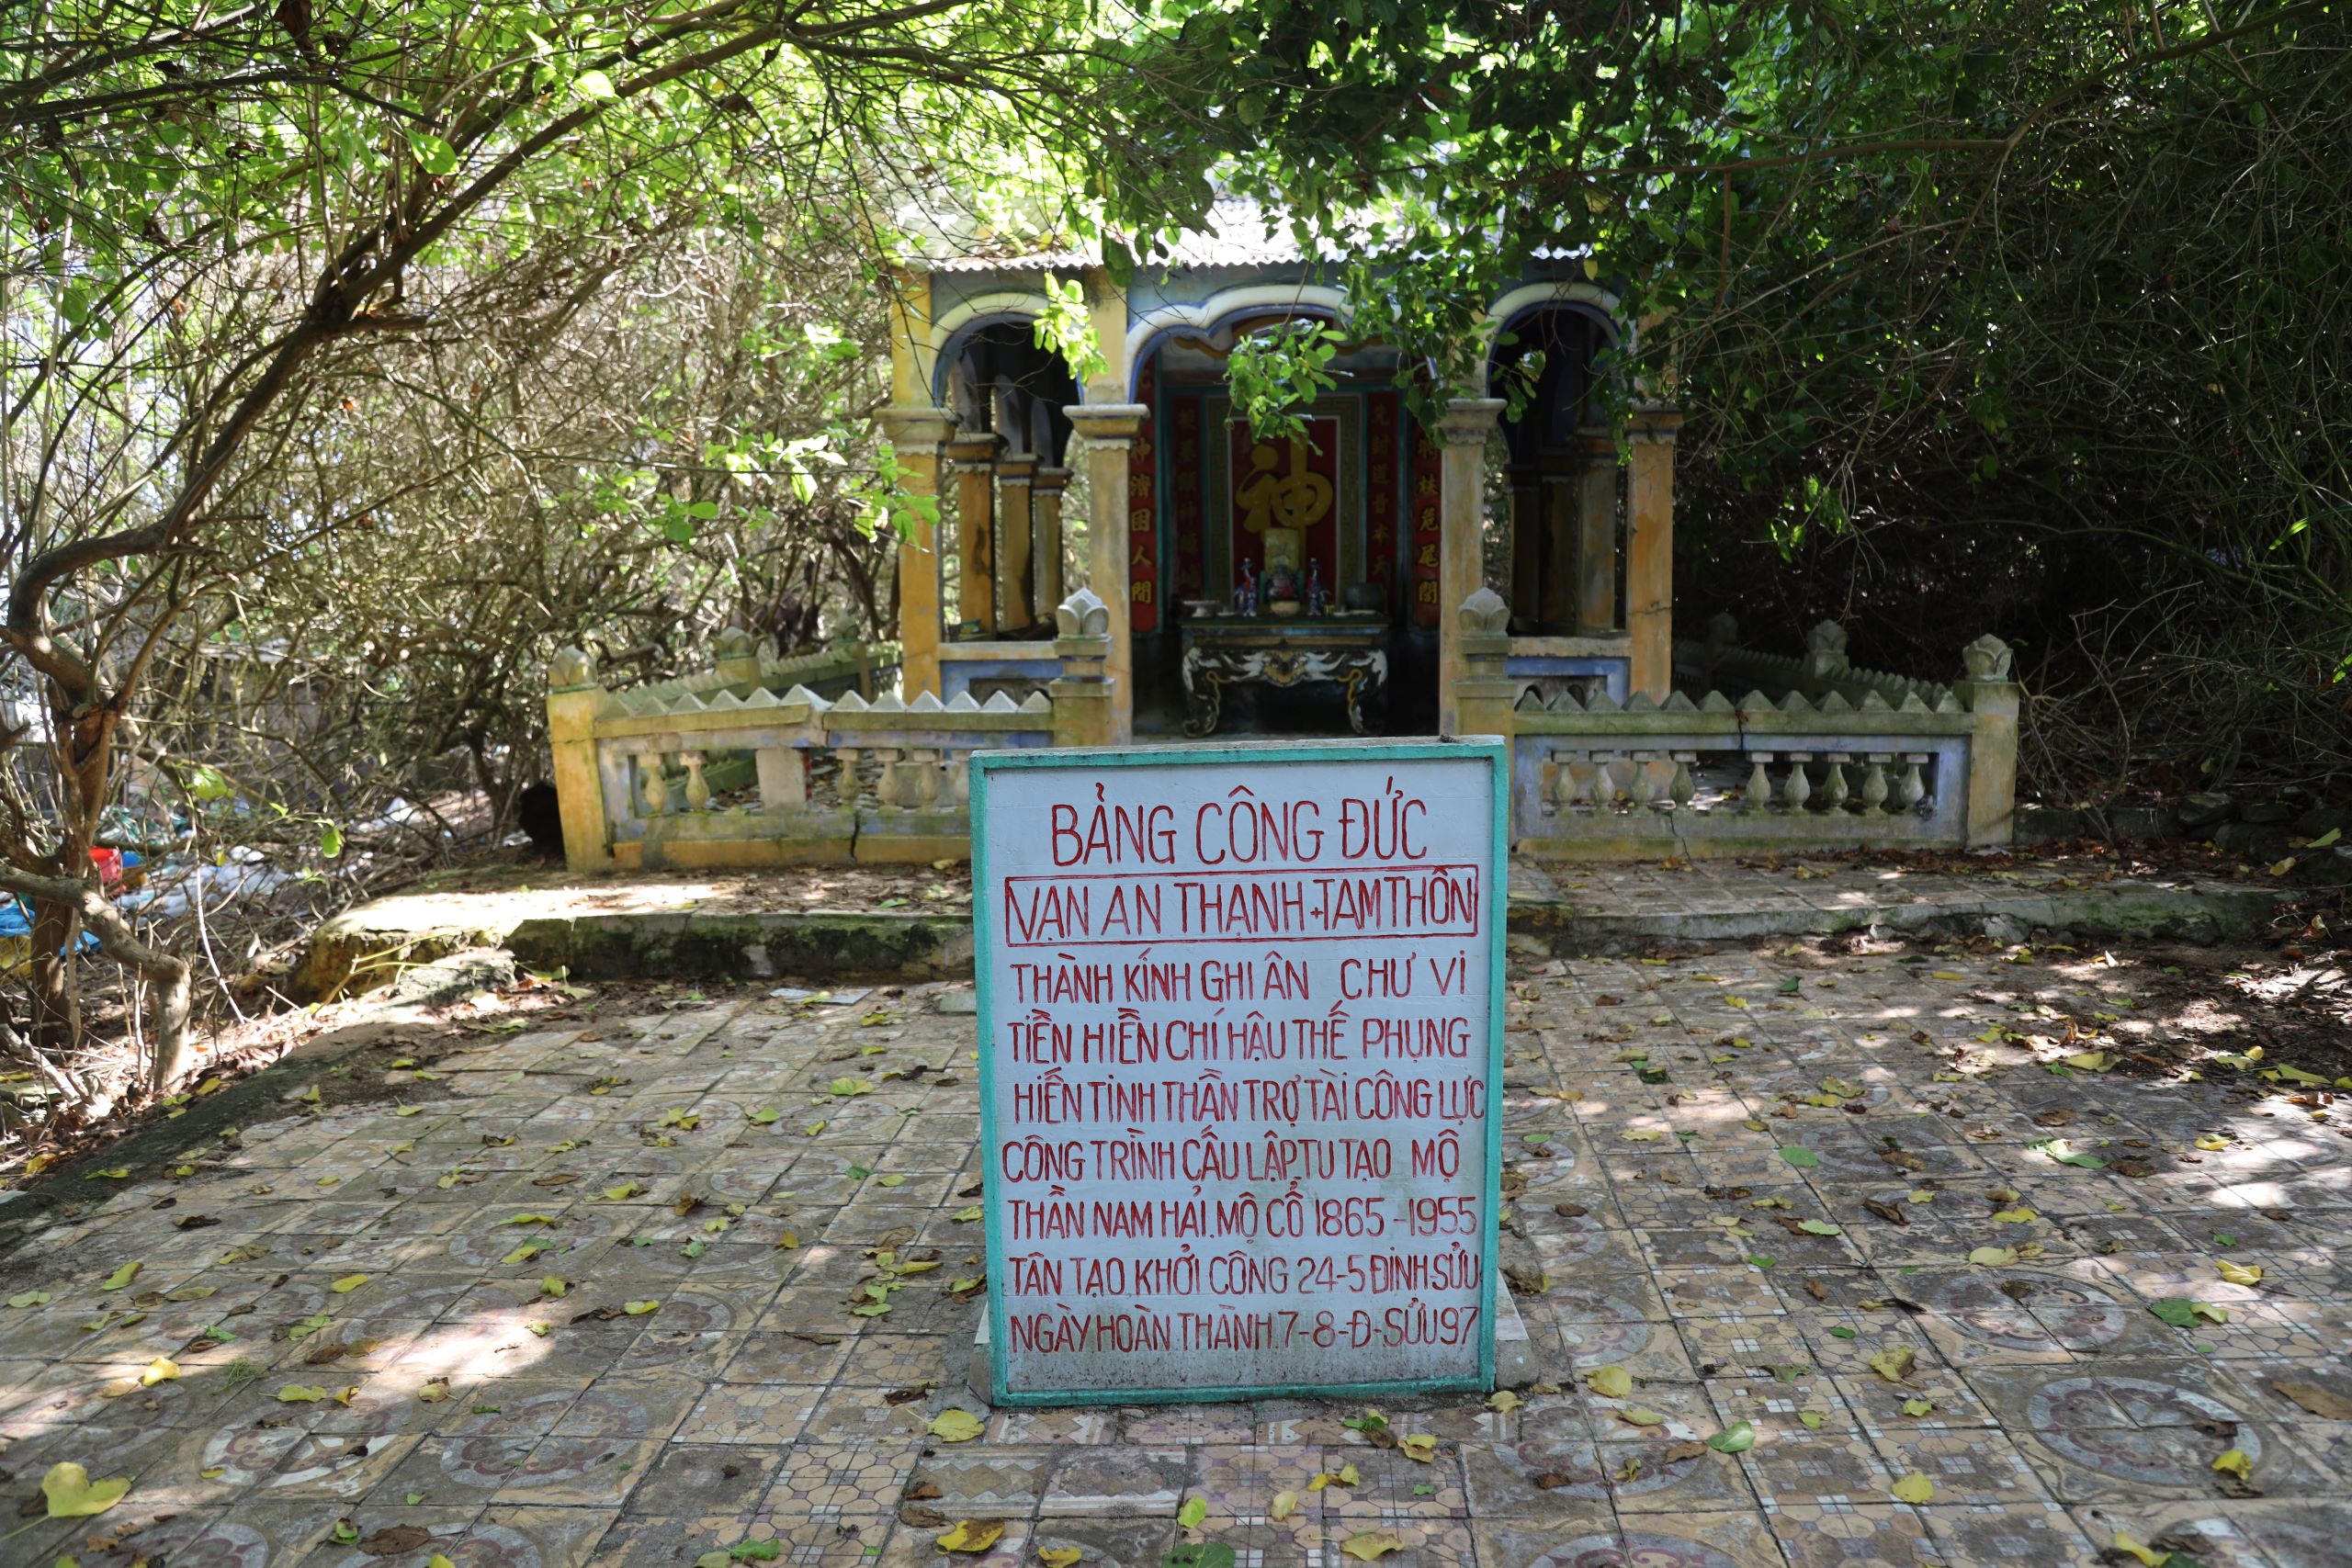 神
神濟困人間
將扶危尾閭
BẢNG CÔNG ĐỨC
VẠN AN THẠNH+TAM THÔN
THÀNH KÍNH GHI ÂN CHƯ VI
TIỀN HIỀN CHÍ HẬU THẾ PHỤNG
HIẾN TINH THẦN TRỢ TÀI CÔNG LỰC
CÔNG TRÌNH CẤU LẬP.TU TẠO MỘ
THẦN NAM HẢI.MỘ CỔ 1865-1955
TÂN TẠO KHỞI CÔNG 24-5 ĐINH.SỬU
NGÀY HOÀN THÀNH.7-8-Đ-SỬU97